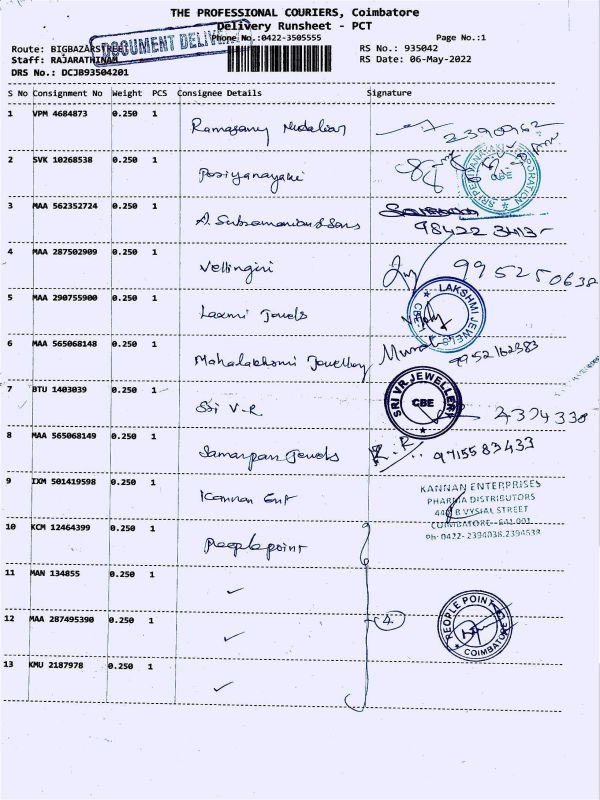 THE PROFESSIONAL COURIERS, Coimbatore
Delivery Runsheet - PCT
DOCUMENT DELIVER
Phone No.:0422-3505555 Page No.:1
Route: BIGBAZARSTREET RS No.: 935042
Staff: RAJARATHINAM RS Date: 06-May-2022
DRS No.: DCJB93504201
S No Consignment No Weight PCS Consignee Details Signature
1 VPM 4684873 0.250 1 Ramasamy Mudaliar 2390962
2 SVK 10268538 0.250 1 Periyanayaki
CBE
3 MAA 562352724 0.250 1 A. Subramanian & Sons
98422 3413
4 MAA 287502909 0.250 1 Vellingiri 995250638
5 MAA 290755900 0.250 1 Laxmi Jewels
LAKSHMI JEWELS CBE
6 MAA 565068148 0.250 1 Mahalakshmi Jewellery Murali 9952162383
7 BTU 1403039 0.250 1 Sri V-R 4394338
SRI VR JEWELLERY CBE
8 MAA 565068149 0.250 1 Samarpan Jewels R.R 9715583433
9 IXM 501419598 0.250 1 Kannan Ent
KANNAN ENTERPRISES
PHARMA DISTRIBUTORS
VYSIAL STREET
COIMBATORE - 641 001
Ph: 0422-2394038,2394538
10 KCM 12464399 0.250 1 Peoplepoint
11 MAN 134855 0.250 1 ✓
12 MAA 287495390 0.250 1 ✓ 4
PEOPLE POINT COIMBATORE
13 KMU 2187978 0.250 1 ✓